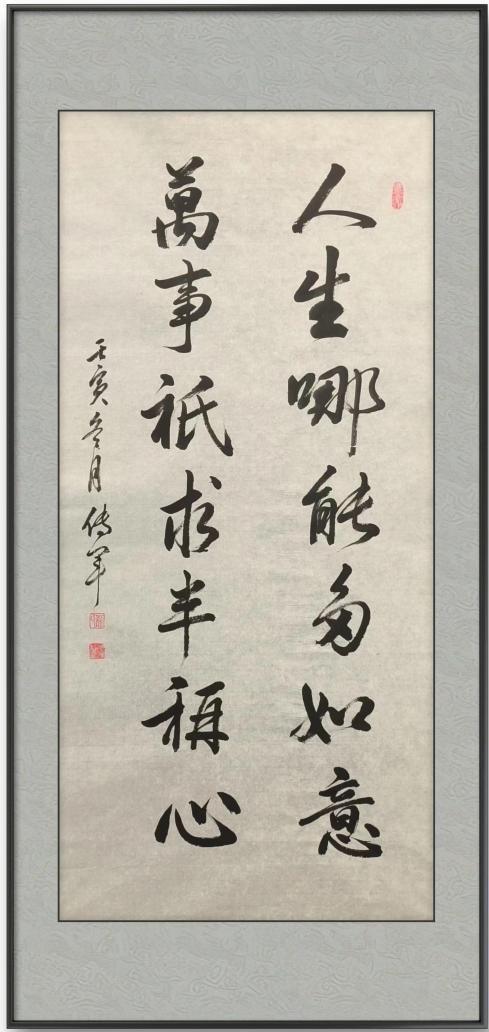 人生哪能多如意
萬事祇求半稱心
壬寅冬月傳軍